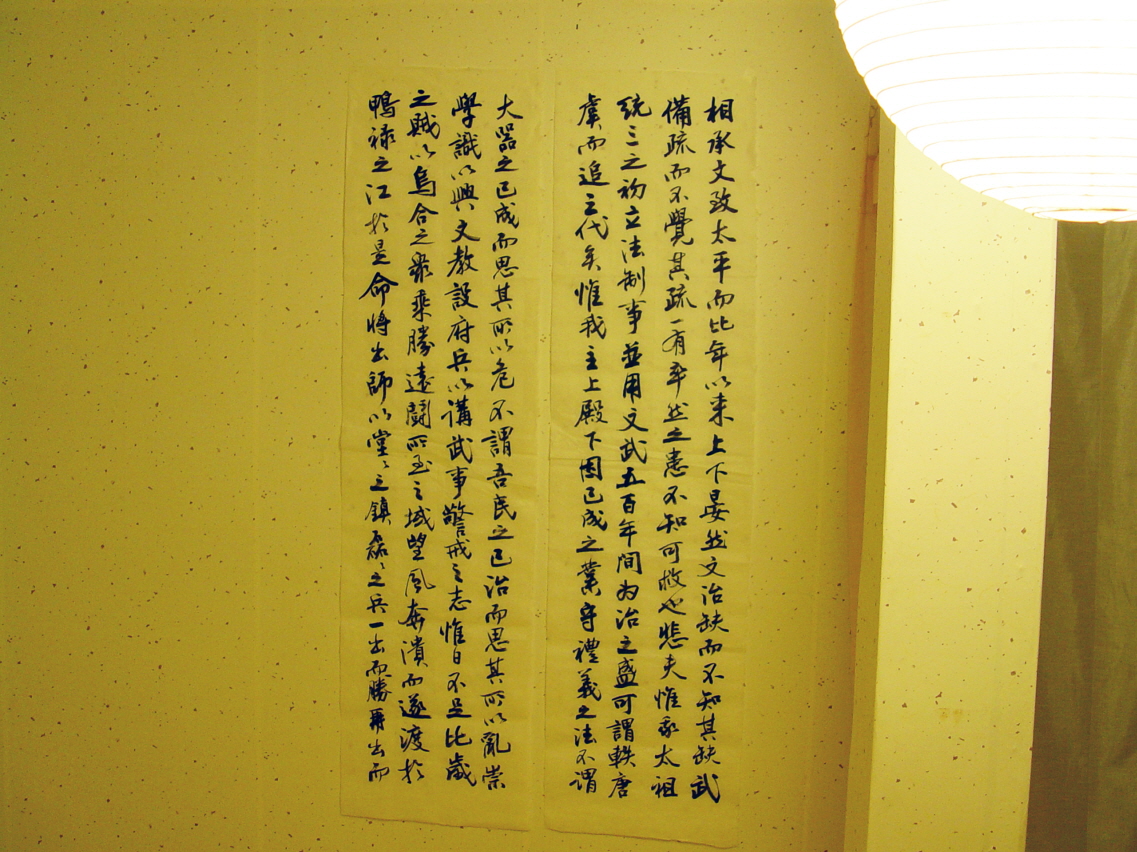 相承文致太平而比年以來上下晏然文治缺而不知其缺武
備疏而不覺其疏一有卒然之患不知可救也悲夫惟我太祖
統三之初立法制事並用文武五百年間為治之盛可謂軼唐
虞而追三代矣惟我主上殿下因已成之業守禮義之法不謂
大器之已成而思其所以危不謂吾民之已治而思其所以亂崇
學識以興文教設府兵以講武事警戒之志惟日不足比歲
之賊以烏合之衆乘勝遠鬪所至之域望風奔潰而遂渡於
鴨綠之江於是命將出師以堂〻之鎮磊〻之兵一出而勝再出而